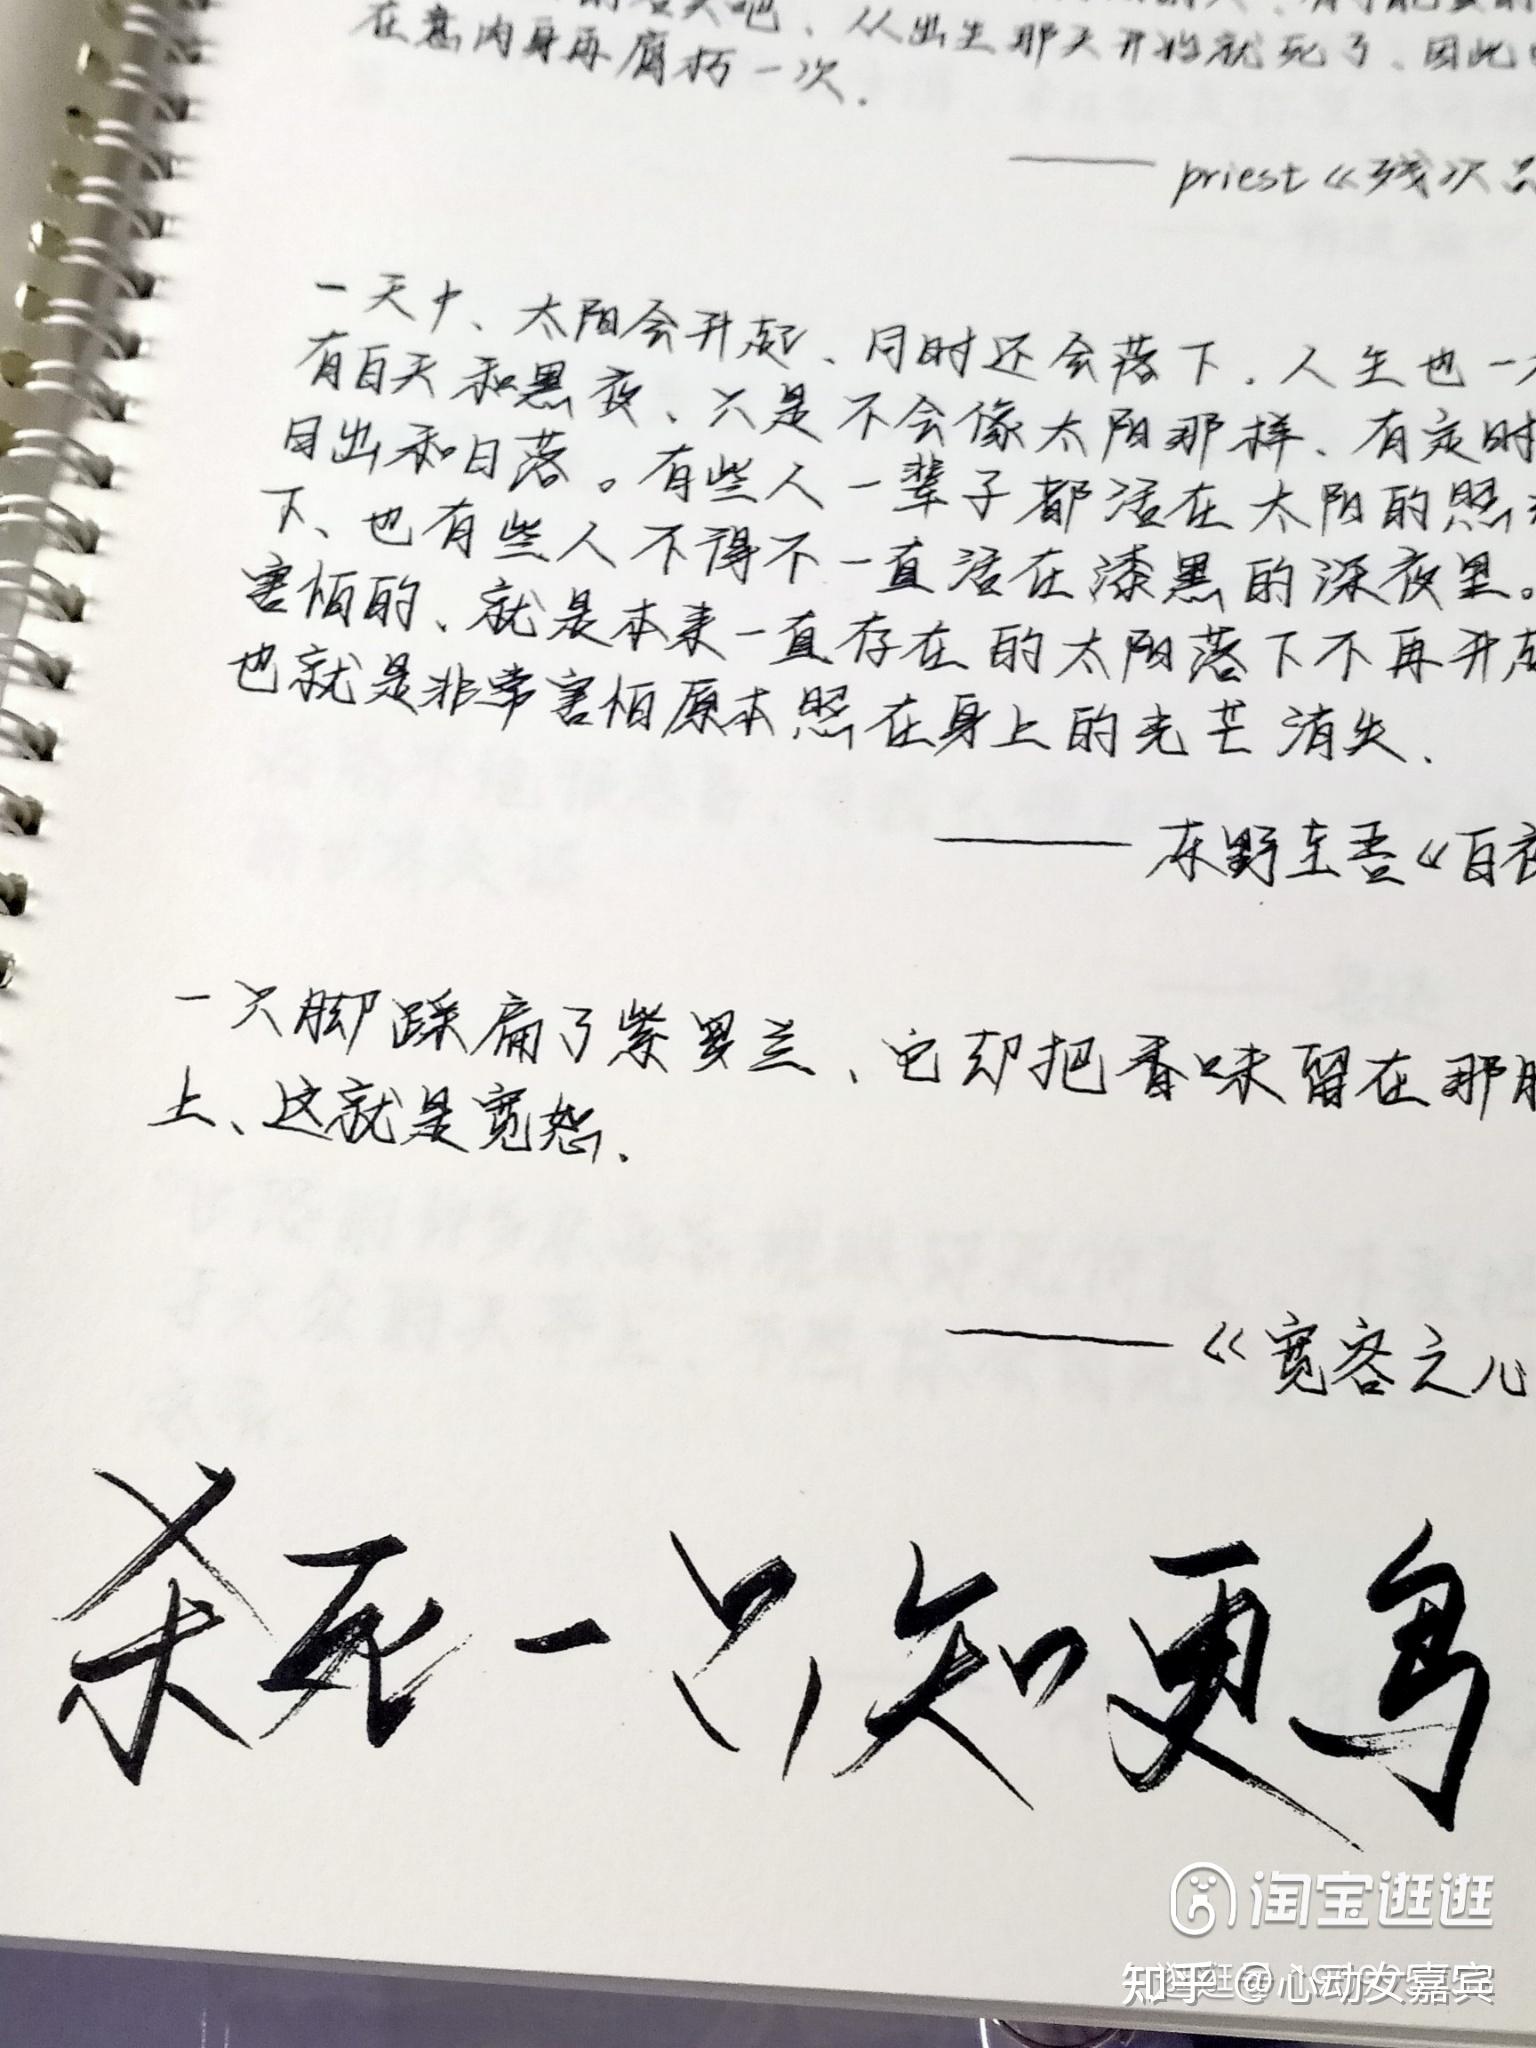 在意肉身再腐朽一次.
—— priest《残次品
一天中、太阳会升起、同时还会落下.人生也一
有白天和黑夜、只是不会像太阳那样、有定时
日出和日落。有些人一辈子都活在太阳的照
下、也有些人不得不一直活在漆黑的深夜里。
害怕的、就是本来一直存在的太阳落下不再升起
也就是非常害怕原本照在身上的光芒消失.
—— 东野圭吾《白夜
一只脚踩扁了紫罗兰、它却把香味留在那脚
上、这就是宽恕.
——《宽容之心
杀死一只知更鸟
淘宝逛逛
知乎 @心动女嘉宾